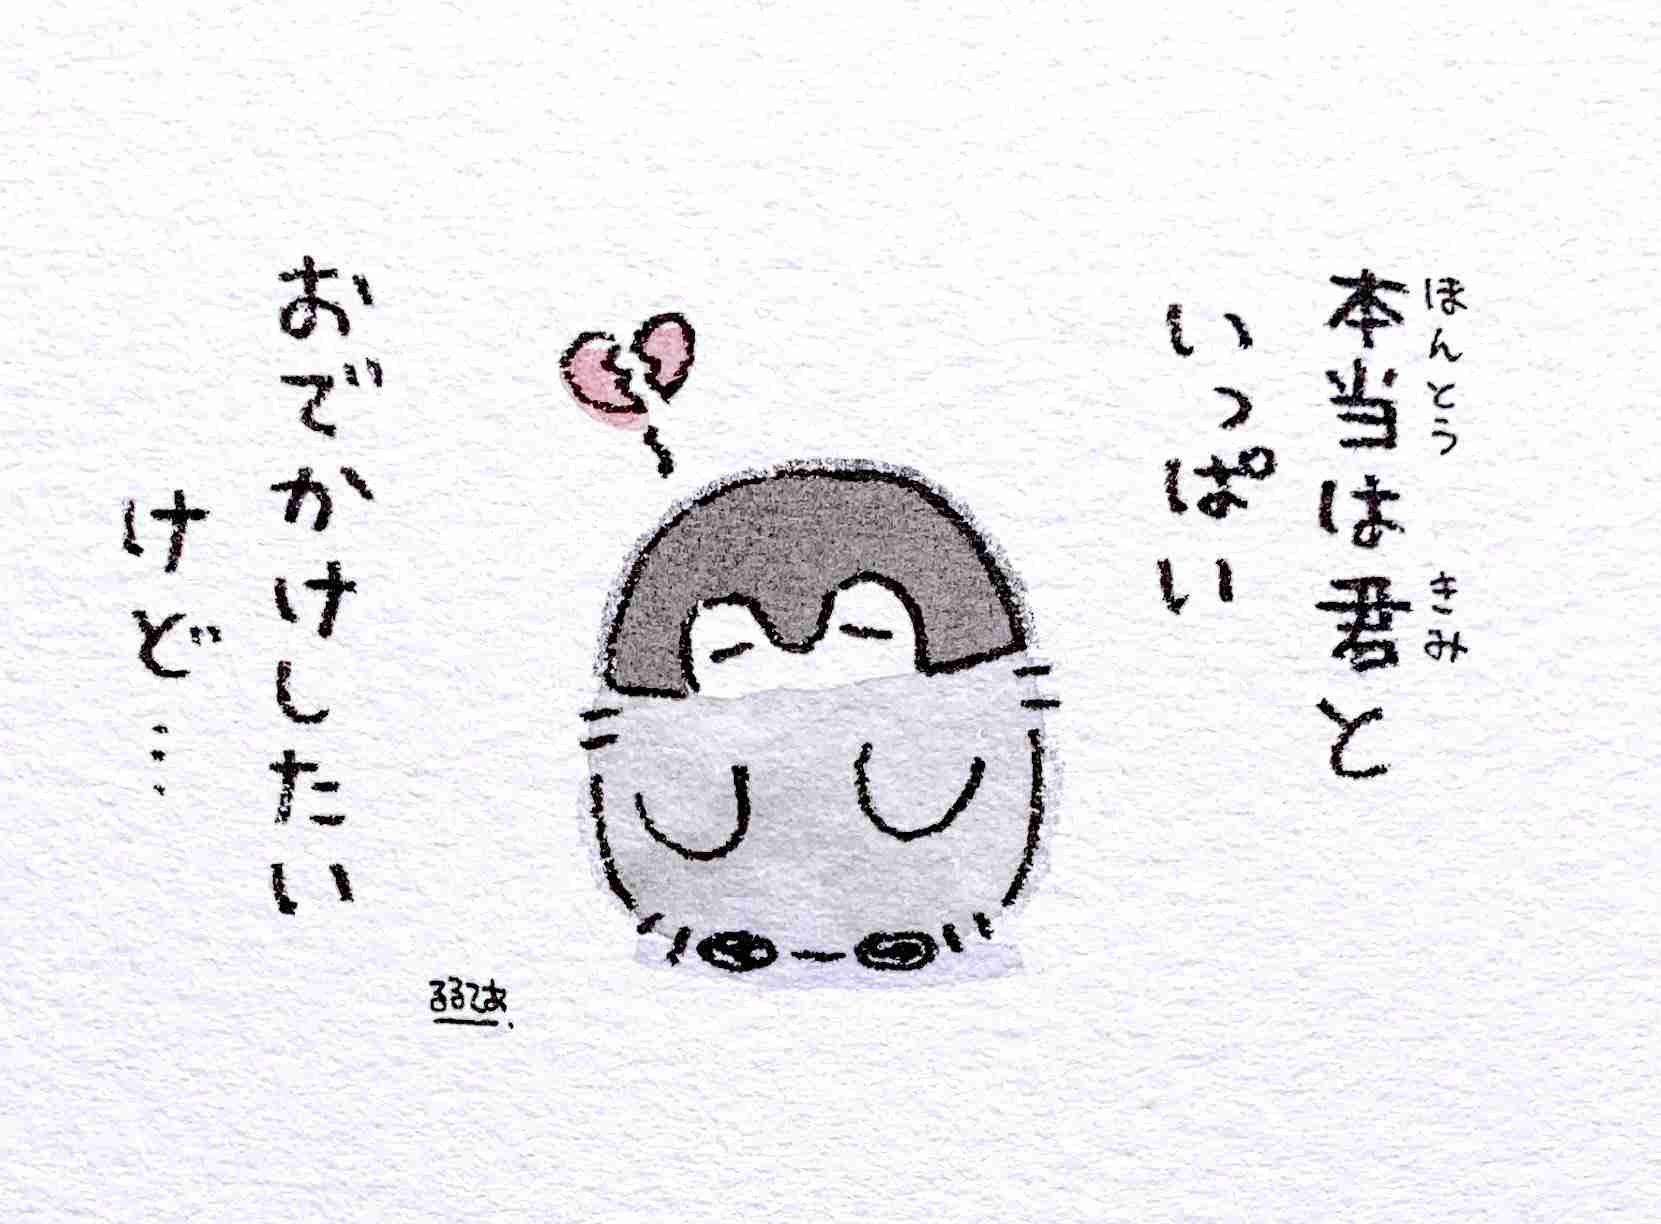 本当は君と
ほんとう
きみ
いっぱい
おでかけしたい
けど…
るるてあ